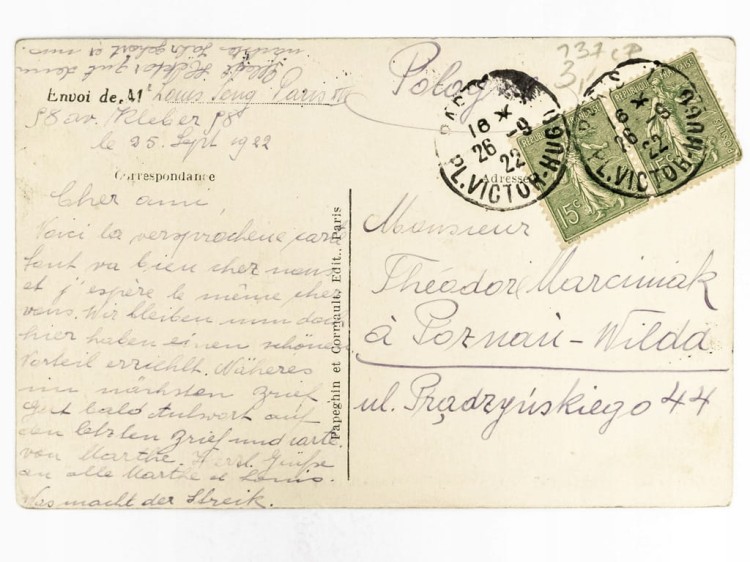 Envoi de M Louis Jeng Paris
58 av. Kleber 58
le 25. Sept 1922
Correspondance
Cher ami
Voici la versprochene carte
tout va bien chez nous
et j'espère le même chez
vous. Wir bleiben nun doch
hier haben einen schönen
Vorteil erziehlt. Näheres
im nächsten Brief
gut bald Antwort auf
den letzten Brief und Carte
von Marthe. Herzl. Grüße
an alle Marthe et Louis.
Was macht der Streik.
Papeghin et Cormault, Edit., Paris
Pologne
237
3,
PARIS
16 *
26 -9
22
PL. VICTOR-HUGO
PARIS
16 *
26 -9
22
PL. VICTOR-HUGO
15c
15c
Adresse
Monsieur
Théodor Marciniak
à Poznań-Wilda
ul. Prądzyńskiego 44